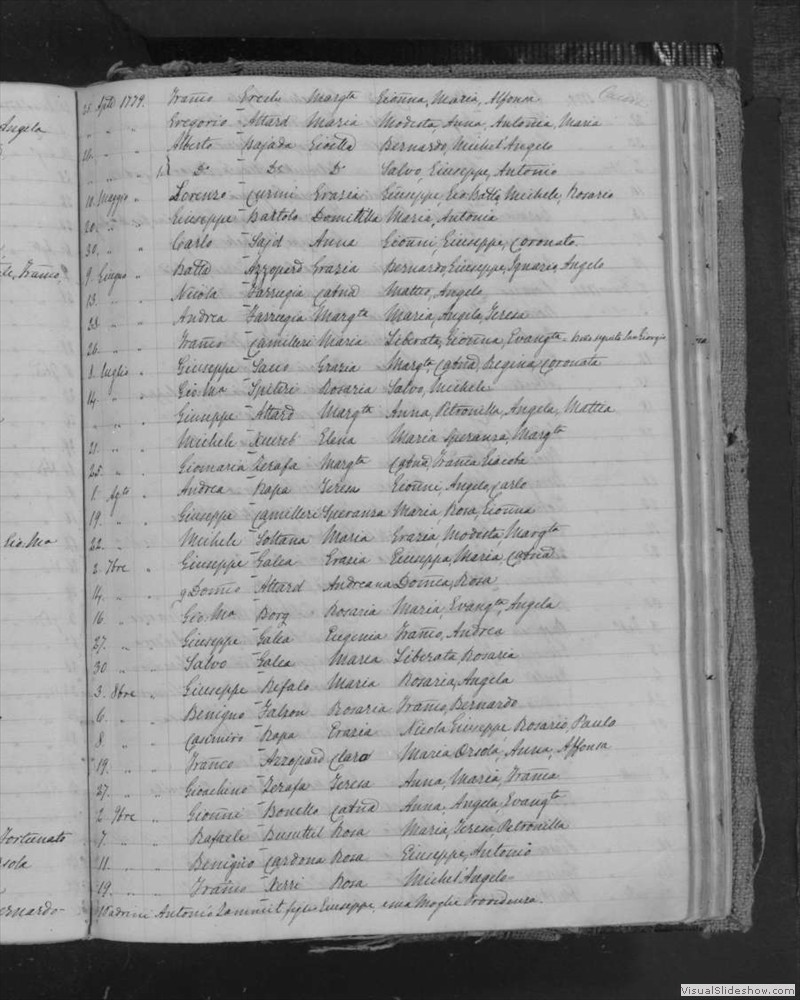 25 Aple 1779. Franco Grech Margta Gionna, Maria, Alfonsa
" " " Gregorio Attard Maria Modesta, Anna, Antonia, Maria
" " Alberto Gioella Bernardo, Michel'Angelo
" " " Do Do Do Salvo, Giuseppe, Antonio
10. Maggio " Lorenzo Curmi Grazia Giuseppe, Gio Batta, Michele, Rosario
20. " " Giuseppe Bartolo Domitilla Maria, Antonia
30. " " Carlo Sajd Anna Gionni, Giuseppe, Coronato.
9. Giugno " Batta Azzopard Grazia Bernardo, Giuseppe, Ignazio, Angelo
13. " " Nicola Farrugia Catna Matteo, Angelo
" " Andrea Farrugia Margta Maria, Angela, Teresa
26. " " Franco Camilleri Maria Liberata, Gionna, Evangta
8. Luglio " Giuseppe Grazia Margta, Catna, Regina, Coronata
14. " " Gio. Ma Spiteri Rosaria Salvo, Michele
" " " Giuseppe Attard Margta Anna, Petronilla, Angela, Mattia
21. " " Michele Xuereb Elena Maria Speranza, Margta
25. " " Giomaria Zerafa Margta Catna, Franca, Giacoba
1. Agto " Andrea Rapa Teresa Gionni, Angelo, Carlo
19. " " Giuseppe Camilleri Speranza Maria, Rosa, Gionna
22. " " Michele Soltana Maria Grazia, Modesta, Margta
2. 7bre " Giuseppe Galea Grazia Giuseppa, Maria, Catna
14. " " Domco Attard Andreana Domca, Rosa
16 " " Gio: Ma Borg Rosaria Maria, Evangta, Angela
27. " " Giuseppe Galea Eugenia Franco, Andrea
30 " " Salvo Galea Maria Liberata, Rosaria
3. 8bre " Giuseppe Refalo Maria Rosaria, Angela
6. " " Benigno Falzon Rosaria Franco, Bernardo
8 " " Casimiro Rapa Grazia Nicola Giuseppe Rosario, Paulo
19. " " Franco Azzopard Clara Maria Orsola, Anna, Alfonsa
27. " " Gioachino Zerafa Teresa Anna, Maria, Franca
2. 9bre " Gionni Bonello Catna Anna, Angela, Evangta
7. " " Rafaele Busuttil Rosa Maria, Teresa, Petronilla
11. " " Benigno Cardona Rosa Giuseppe, Antonio
19. " " Franco Xerri Rosa Michel'Angelo
Padrini Antonio Sammut figlio Giuseppe, e sua Moglie Providenza.
Angela
Gio Ma
Fortunato
VisualSlideshow.com